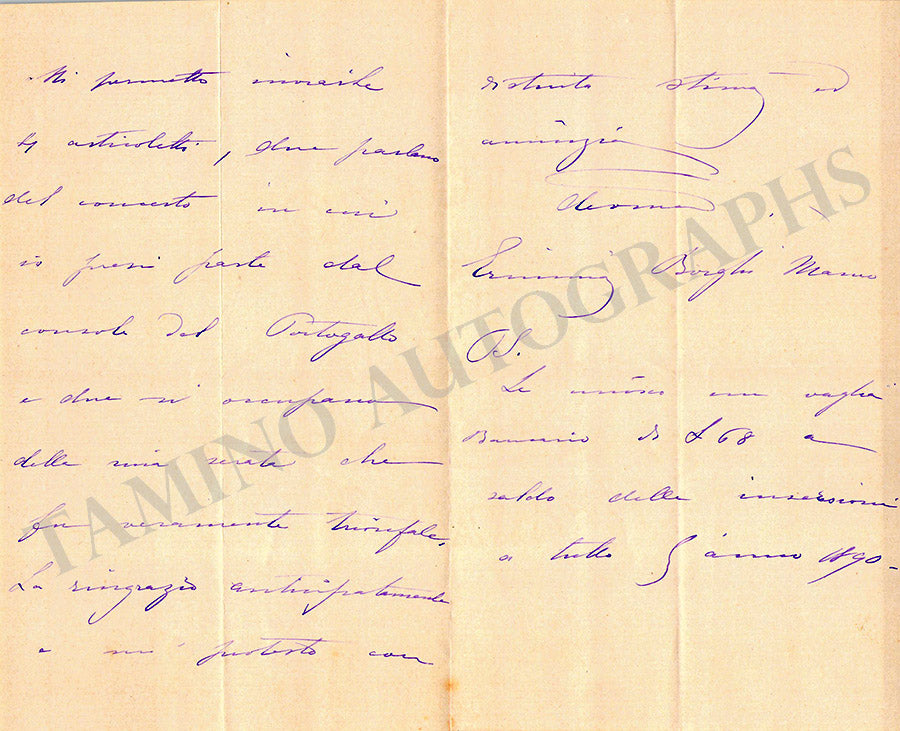 Mi permetto inviarle
4 articoletti, due parlano
del concerto in cui
io presi parte dal
console del Portogallo
e due si occupano
della mia serata che
fu veramente trionfale.
La ringrazio anticipatamente
e mi protesto con
distinta stima ed
amicizia
devma
Erminia Borghi Mamo
PS.
Le unisco un vaglia
Bancario di £ 68 a
saldo delle inserzioni
a tutto l'anno 1890-
TAMINO AUTOGRAPHS